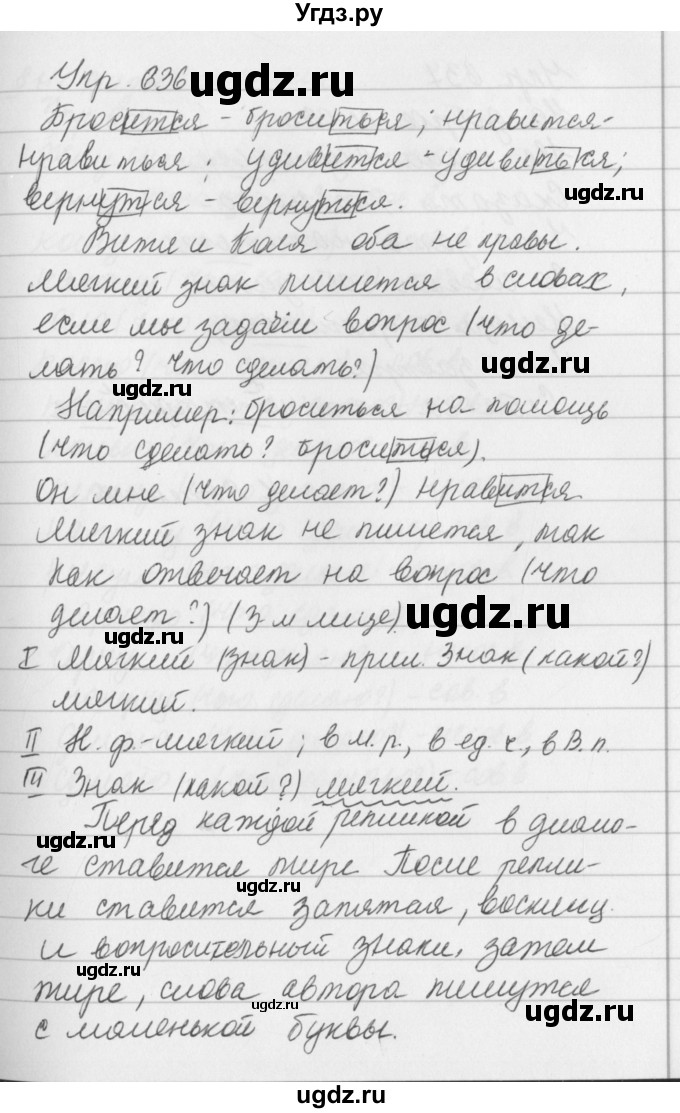 Угдз.ру
Упр. 836
ugdz.ru
Бросится - броситься; нравится-
нравиться; удивится - удивиться;
вернутся - вернуться.
Витя и Коля оба не правы.
Мягкий знак пишется в словах,
если мы задаём вопрос (что де-
лать? Что сделать?)
ugdz.ru
ugdz.ru
Например: броситься на помощь
(что сделать? броситься).
Он мне (что делает?) нравится.
Мягкий знак не пишется, так
как отвечает на вопрос (что
делает?) (3-м лице).
ugdz.ru
ugdz.ru
I Мягкий (знак) - прил. Знак (какой?)
мягкий.
II Н. ф.-мягкий; в м. р., в ед. ч., в В. п.
III Знак (какой?) мягкий.
Перед каждой репликой в диало-
ugdz.ru
ге ставится тире После репли-
ugdz.ru
ки ставится запятая, восклиц.
и вопросительный знаки, затем
ugdz.ru
тире, слова автора пишутся
ugdz.ru
с маленькой буквы.
ugdz.ru